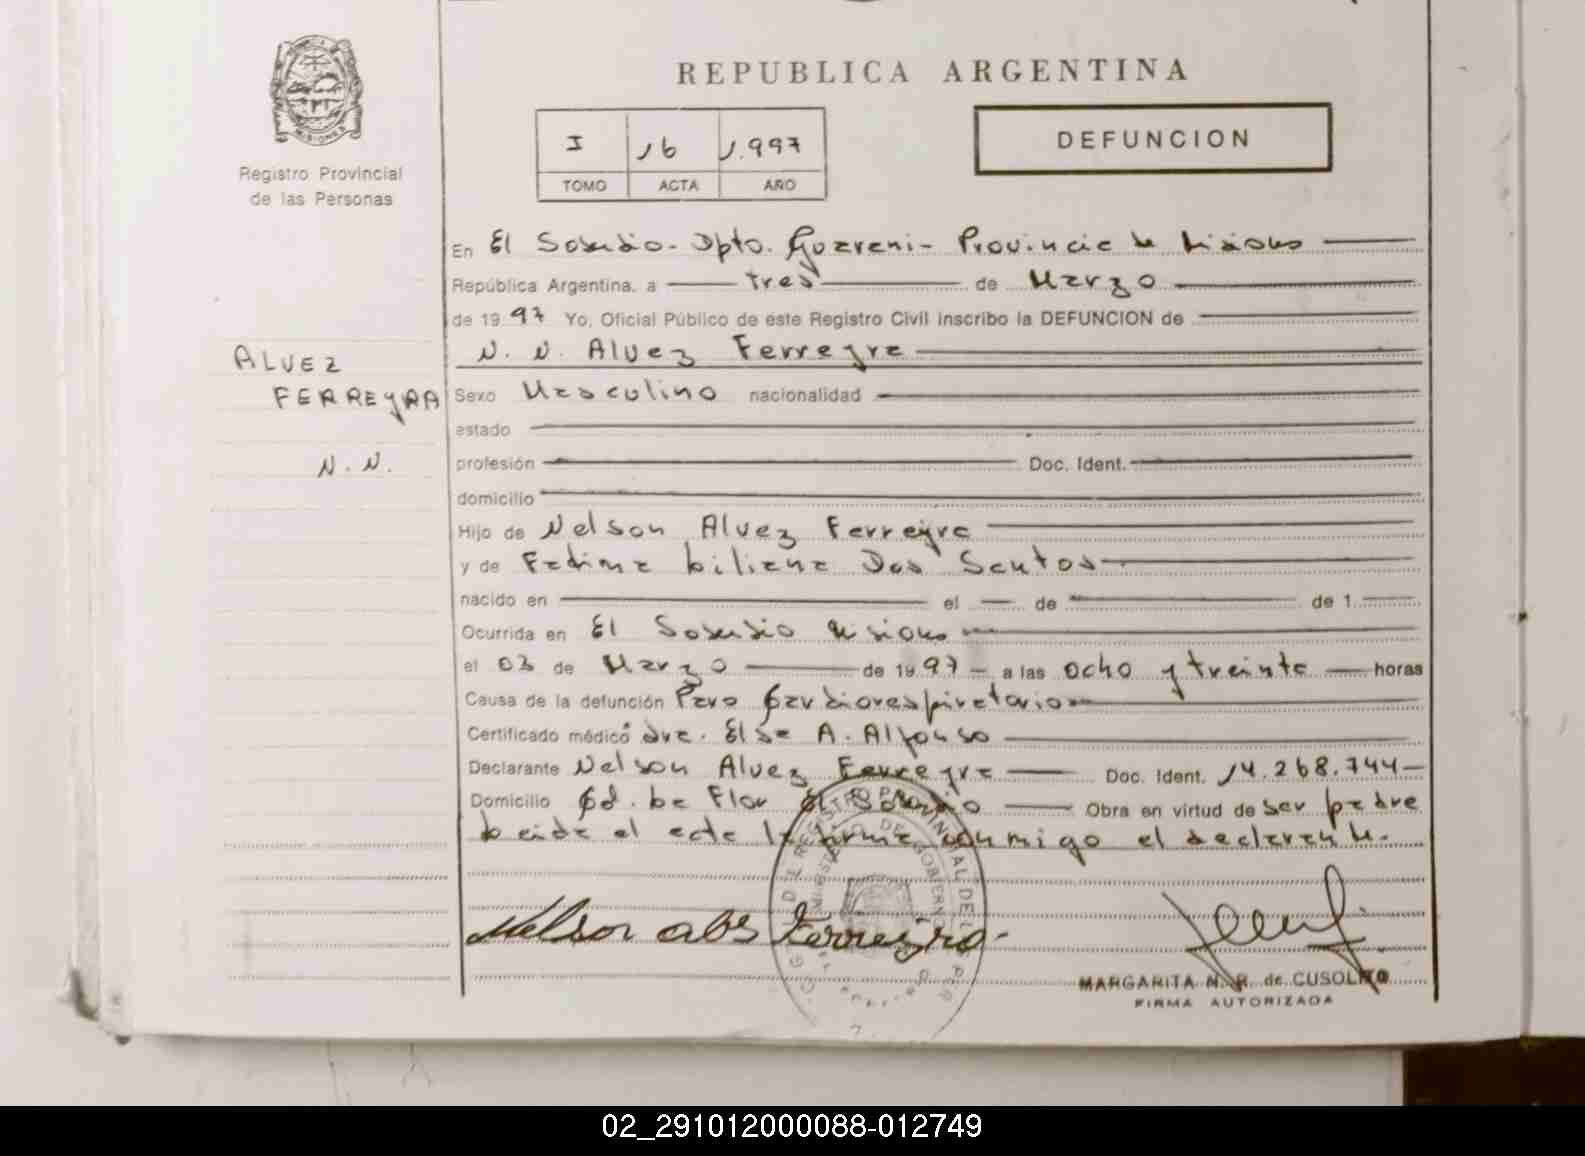 MISIONES
Registro Provincial
de las Personas
ALVEZ
FERREYRA
N. N.
REPUBLICA ARGENTINA
I 16 1.997
TOMO ACTA AÑO
DEFUNCION
En El Soberbio - Dpto. Guarani - Provincia de Misiones
República Argentina, a tres de Marzo
de 1997 Yo, Oficial Público de este Registro Civil inscribo la DEFUNCION de
N. N. Alvez Ferreyra
Sexo Masculino nacionalidad
estado
profesión Doc. Ident.
domicilio
Hijo de Nelson Alvez Ferreyra
y de Fatima Liliana Dos Santos
nacido en el de de 1
Ocurrida en El Soberbio Misiones
el 03 de Marzo de 1997 - a las ocho y treinta horas
Causa de la defunción Paro Cardiorespiratorio
Certificado médico Dra. Elsa A. Alfonso
Declarante Nelson Alvez Ferreyra Doc. Ident. 14.268.744
Domicilio Cd. La Flor El Soberbio Obra en virtud de ser padre
Leida el acta la firma conmigo el declarante.
Nelson alvs Ferreyra
MARGARITA N. R. de CUSOLITO
FIRMA AUTORIZADA
02_291012000088-012749